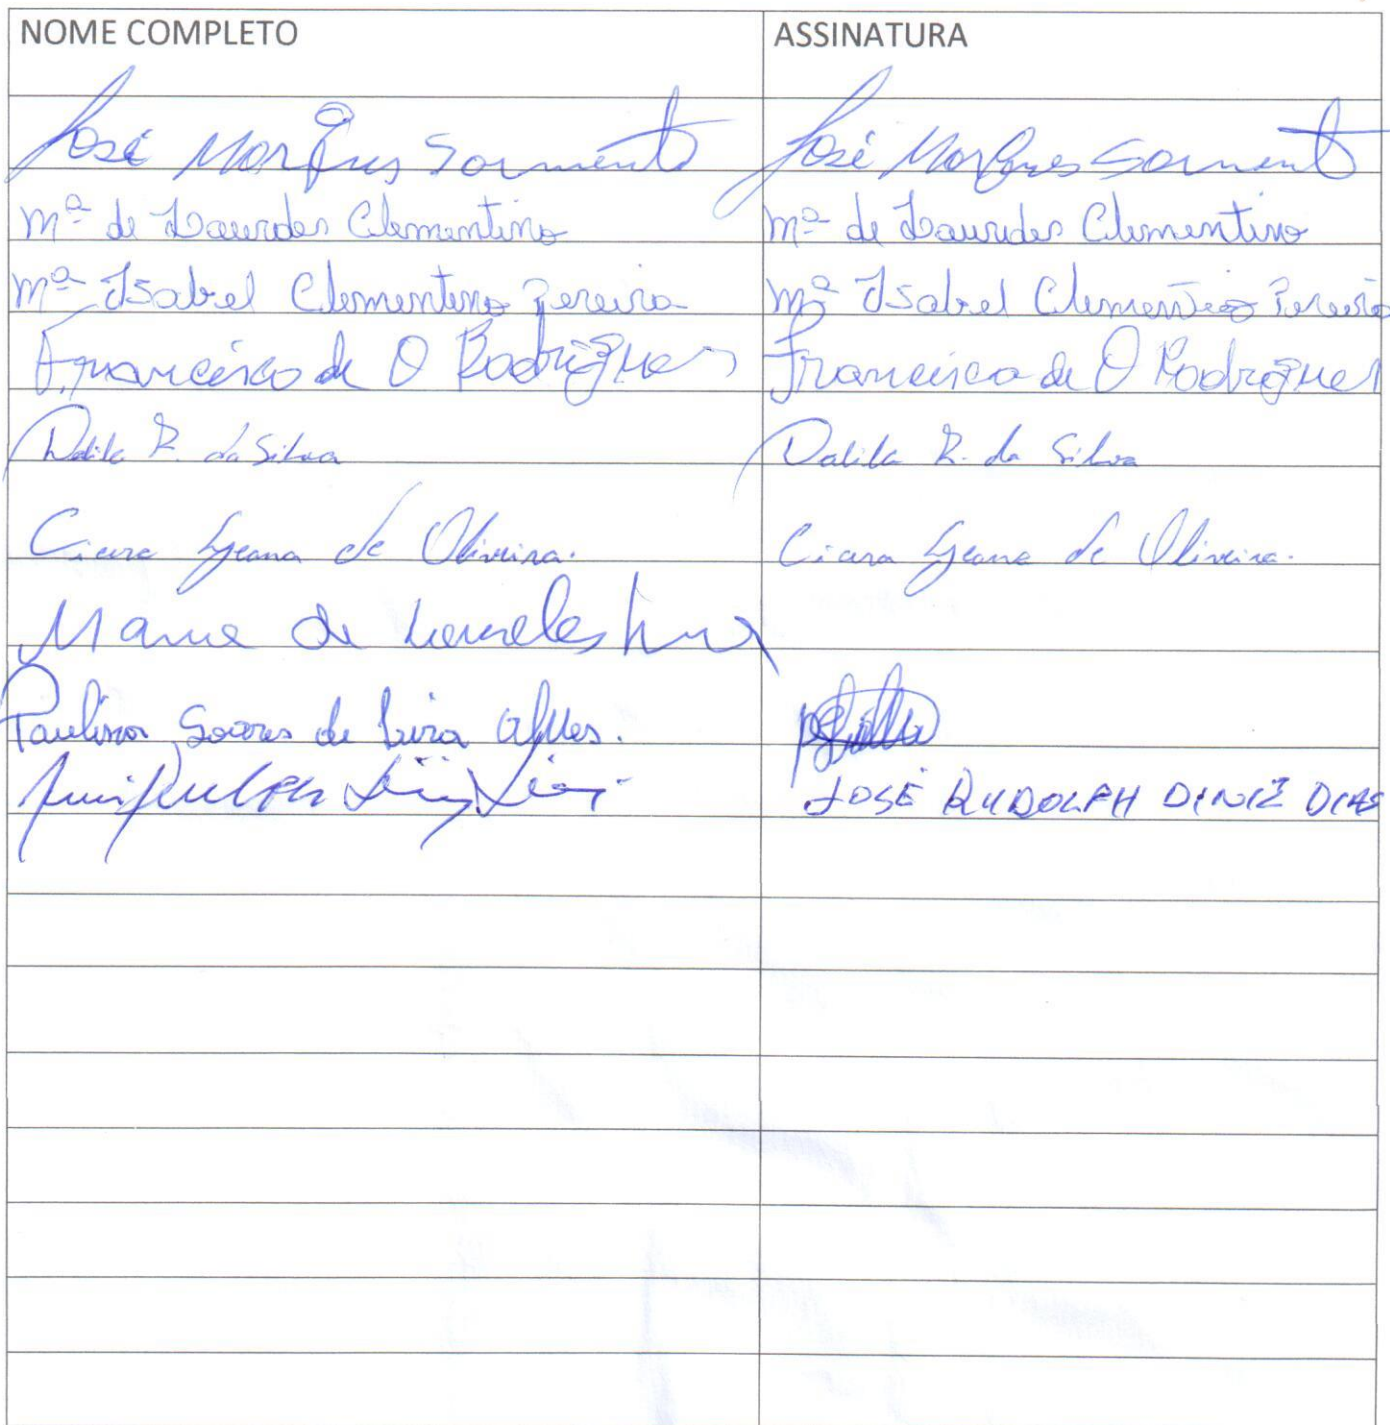 NOME COMPLETO ASSINATURA
José Marques Sarmento José Marques Sarmento
Mª de Lourdes Clementino Mª de Lourdes Clementino
Mª Isabel Clementino Pereira Mª Isabel Clementino Pereira
Francisco de O Rodrigues Francisca de O Rodrigues
Dalila R. da Silva Dalila R. da Silva
Ciara Geana de Oliveira. Ciara Geana de Oliveira.
Maria de Lourdes
Paulina Soares de Lira Alves.
JOSÉ RUDOLPH DINIZ DIAS